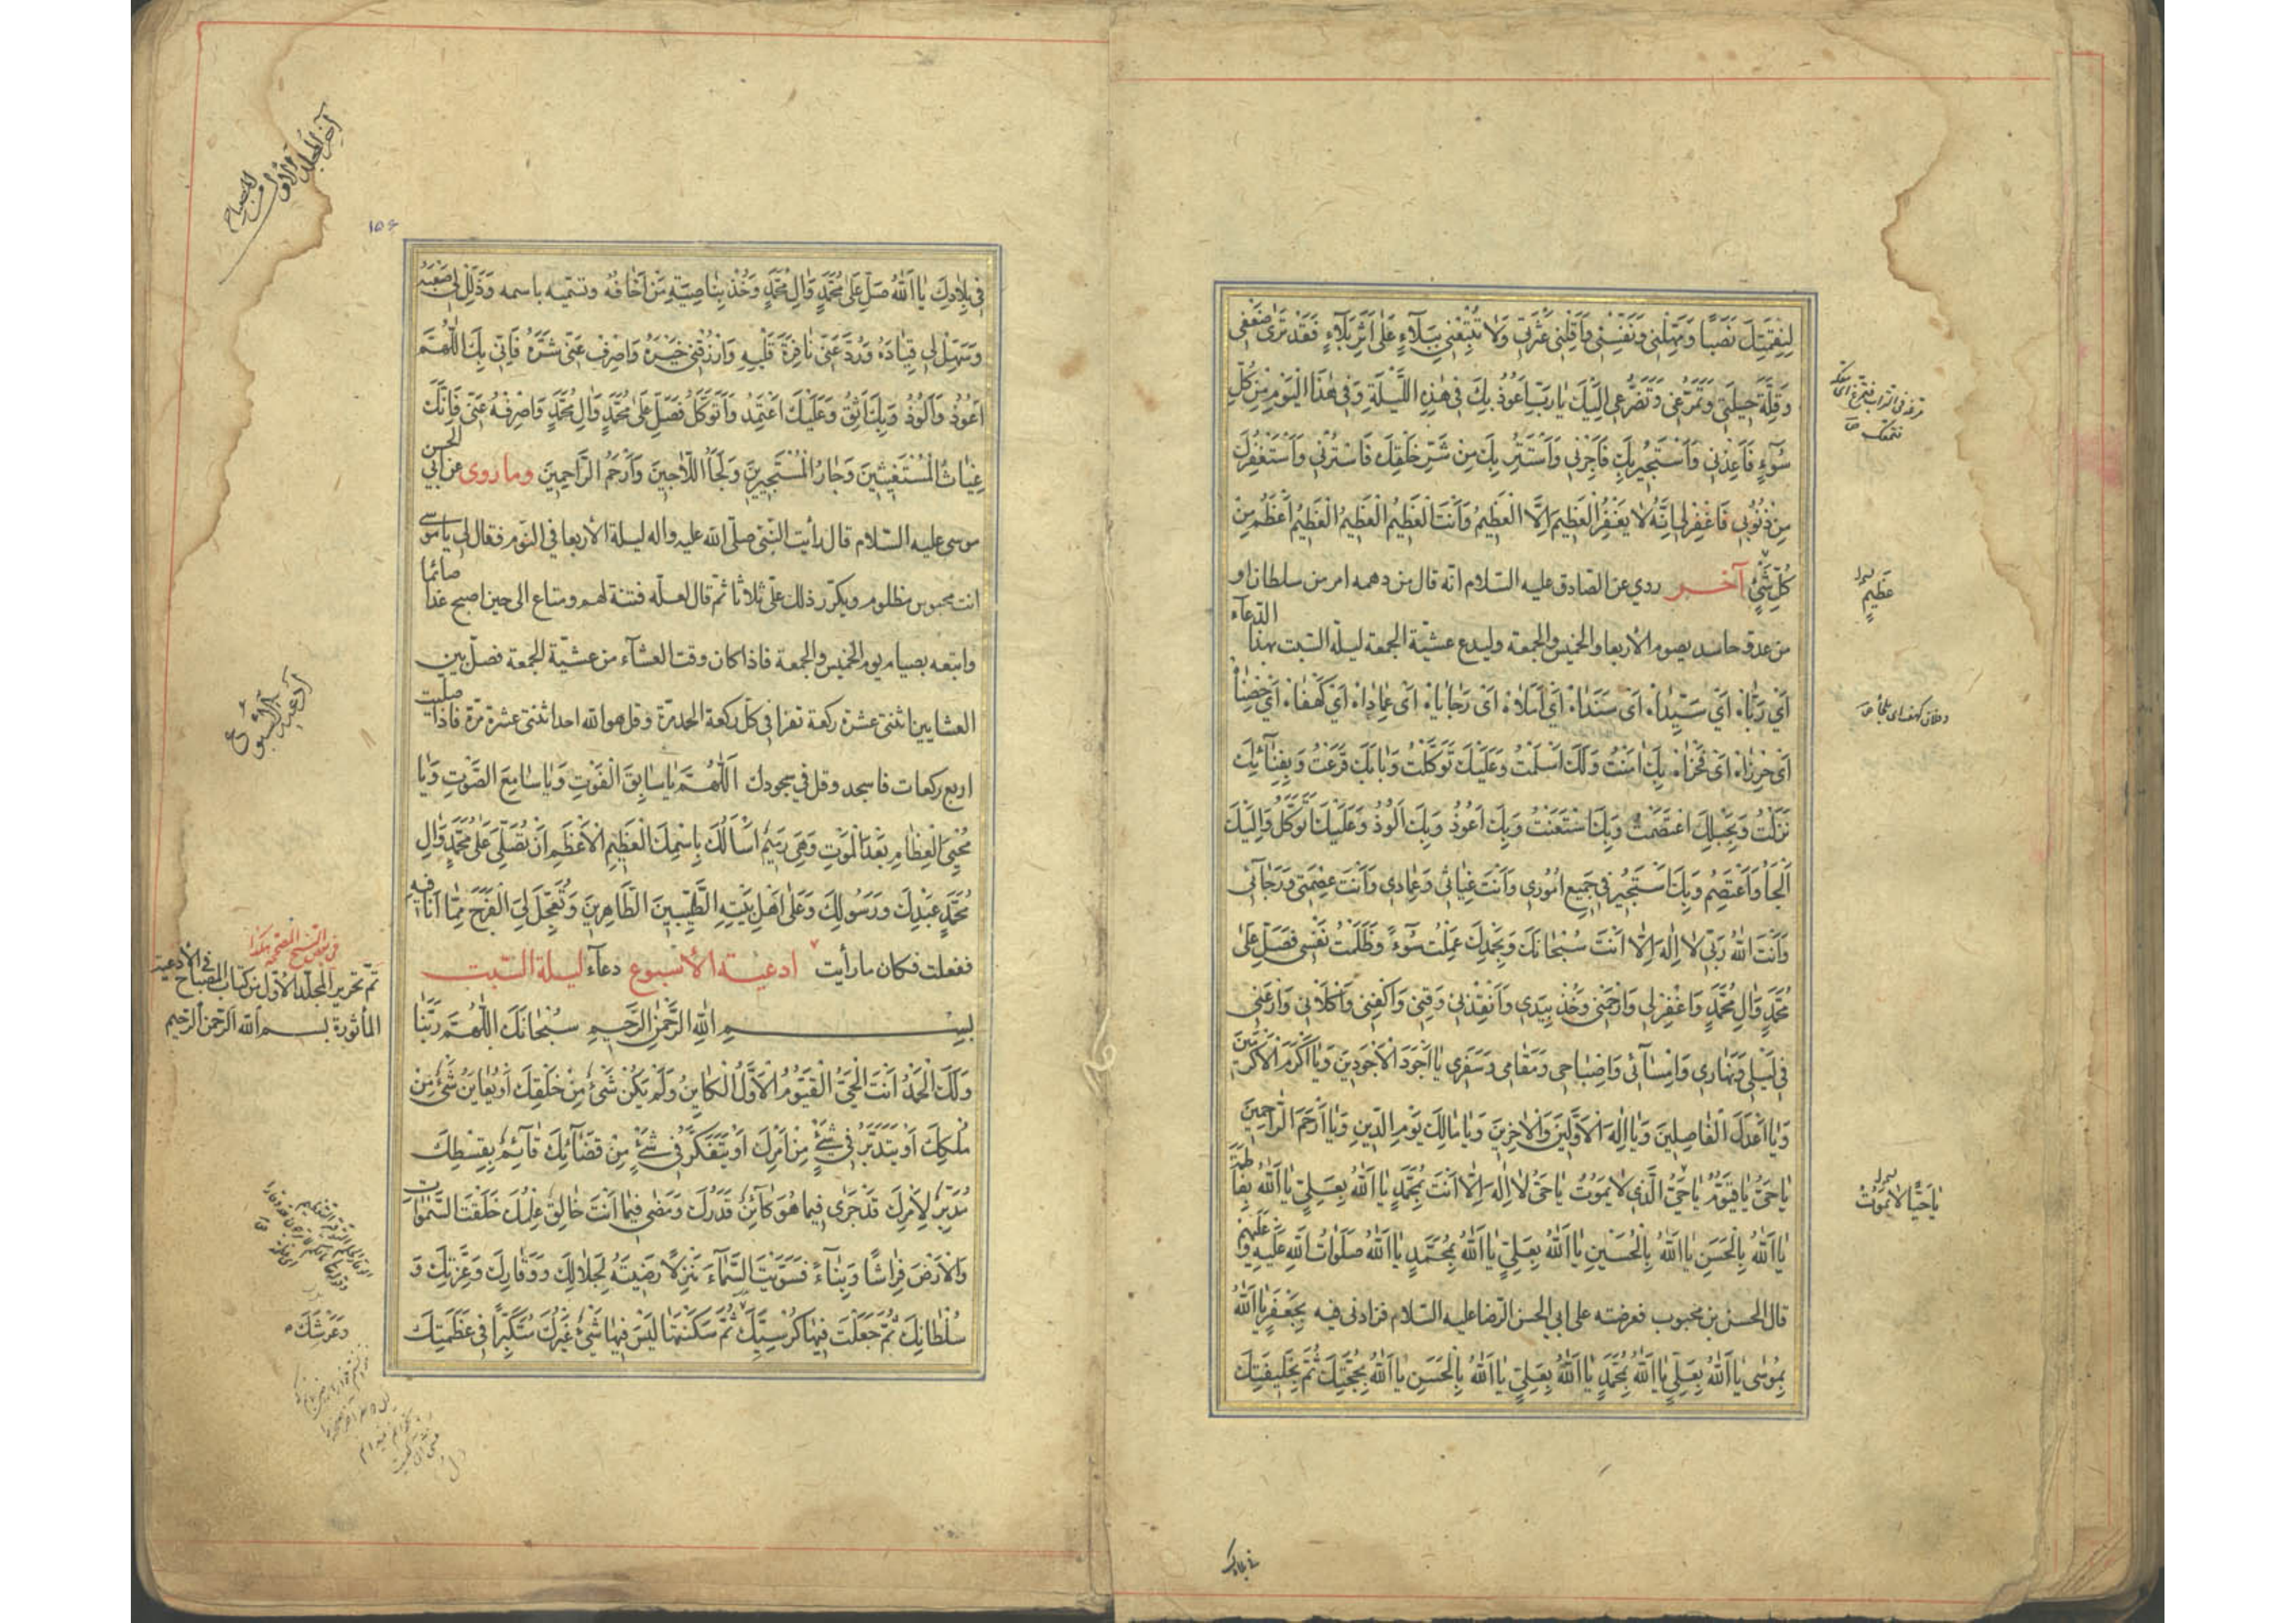 لِنِقْمَتِكَ نَصَبًا وَمَهِّلْنِي وَنَفِّسْنِي وَأَقِلْنِي عَثْرَتِي وَلَا تُتْبِعْنِي بِبَلَاءٍ عَلَى أَثَرِ بَلَاءٍ فَقَدْ تَرَى ضَعْفِي
وَقِلَّةَ حِيلَتِي وَتَمَرُّغِي وَتَضَرُّعِي إِلَيْكَ يَا رَبِّ أَعُوذُ بِكَ فِي هَذِهِ اللَّيْلَةِ وَفِي هَذَا الْيَوْمِ مِنْ كُلِّ
سُوءٍ فَأَعِذْنِي وَأَسْتَجِيرُ بِكَ فَأَجِرْنِي وَأَسْتَتِرُ بِكَ مِنْ شَرِّ خَلْقِكَ فَاسْتُرْنِي وَأَسْتَغْفِرُكَ
مِنْ ذُنُوبِي فَاغْفِرْ لِي إِنَّهُ لَا يَغْفِرُ الْعَظِيمَ إِلَّا الْعَظِيمُ وَأَنْتَ الْعَظِيمُ الْعَظِيمُ الْعَظِيمُ أَعْظَمُ مِنْ
كُلِّ شَيْءٍ آخر روي عن الصادق عليه السلام انه قال من دهمه امر من سلطان او
من عدو حاسد يصوم الأربعا والخميس والجمعة وليدع عشية الجمعة ليلة السبت بهذا الدعاء
أَيْ رَبَّاهُ أَيْ سَيِّدَاهُ أَيْ سَنَدَاهُ أَيْ أَمَلَاهُ أَيْ رَجَايَاهُ أَيْ عِمَادَاهُ أَيْ كَهْفَاهُ أَيْ حِصْنَاهُ
أَيْ حِرْزَاهُ أَيْ فَخْرَاهُ بِكَ آمَنْتُ وَلَكَ أَسْلَمْتُ وَعَلَيْكَ تَوَكَّلْتُ وَبَابَكَ قَرَعْتُ وَبِفِنَائِكَ
نَزَلْتُ وَبِحَبْلِكَ اعْتَصَمْتُ وَبِكَ اسْتَعَنْتُ وَبِكَ أَعُوذُ وَبِكَ أَلُوذُ وَعَلَيْكَ أَتَوَكَّلُ وَإِلَيْكَ
أَلْجَأُ وَأَعْتَصِمُ وَبِكَ أَسْتَجِيرُ فِي جَمِيعِ أُمُورِي وَأَنْتَ غِيَاثِي وَعِمَادِي وَأَنْتَ عِصْمَتِي وَرَجَائِي
وَأَنْتَ اللَّهُ رَبِّي لَا إِلَهَ إِلَّا أَنْتَ سُبْحَانَكَ وَبِحَمْدِكَ عَمِلْتُ سُوءًا وَظَلَمْتُ نَفْسِي فَصَلِّ عَلَى
مُحَمَّدٍ وَآلِ مُحَمَّدٍ وَاغْفِرْ لِي وَارْحَمْنِي وَخُذْ بِيَدِي وَأَنْقِذْنِي وَقِنِي وَاكْفِنِي وَاكْلَأْنِي وَارْعَنِي
فِي لَيْلِي وَنَهَارِي وَإِمْسَائِي وَإِصْبَاحِي وَمَقَامِي وَسَفَرِي يَا أَجْوَدَ الْأَجْوَدِينَ وَيَا أَكْرَمَ الْأَكْرَمِينَ
وَيَا أَعْدَلَ الْفَاصِلِينَ وَيَا إِلَهَ الْأَوَّلِينَ وَالْآخِرِينَ وَيَا مَالِكَ يَوْمِ الدِّينِ وَيَا أَرْحَمَ الرَّاحِمِينَ
يَا حَيُّ يَا قَيُّومُ يَا حَيُّ الَّذِي لَا يَمُوتُ يَا حَيُّ لَا إِلَهَ إِلَّا أَنْتَ بِمُحَمَّدٍ يَا اللَّهُ بِعَلِيٍّ يَا اللَّهُ بِفَاطِمَةَ
يَا اللَّهُ بِالْحَسَنِ يَا اللَّهُ بِالْحُسَيْنِ يَا اللَّهُ بِعَلِيٍّ يَا اللَّهُ بِمُحَمَّدٍ يَا اللَّهُ صَلَوَاتُ اللَّهِ عَلَيْهِ وَعَلَيْهِمْ
قال الحسن بن محبوب فعرضته على ابي الحسن الرضا عليه السلام فزادني فيه بِجَعْفَرٍ يَا اللَّهُ
بِمُوسَى يَا اللَّهُ بِعَلِيٍّ يَا اللَّهُ بِمُحَمَّدٍ يَا اللَّهُ بِعَلِيٍّ يَا اللَّهُ بِالْحَسَنِ يَا اللَّهُ بِحُجَّتِكَ ثُمَّ بِخَلِيفَتِكَ
عَظِيمٍ
يَا حَيًّا لَا يَمُوتُ
في بلادك
١٥٤
فِي بِلَادِكَ يَا اللَّهُ صَلِّ عَلَى مُحَمَّدٍ وَآلِ مُحَمَّدٍ وَخُذْ بِنَاصِيَةِ مَنْ أَخَافُهُ وتسميه باسمه وَذَلِّلْ لِي صَعْبَهُ
وَسَهِّلْ لِي قِيَادَهُ وَرُدَّ عَنِّي نَافِرَةَ قَلْبِهِ وَارْزُقْنِي خَيْرَهُ وَاصْرِفْ عَنِّي شَرَّهُ فَإِنِّي بِكَ اللَّهُمَّ
أَعُوذُ وَأَلُوذُ وَبِكَ أَثِقُ وَعَلَيْكَ أَعْتَمِدُ وَأَتَوَكَّلُ فَصَلِّ عَلَى مُحَمَّدٍ وَآلِ مُحَمَّدٍ وَاصْرِفْهُ عَنِّي فَإِنَّكَ
غِيَاثُ الْمُسْتَغِيثِينَ وَجَارُ الْمُسْتَجِيرِينَ وَلَجَأُ اللَّاجِينَ وَأَرْحَمُ الرَّاحِمِينَ وما روى عن أبي الحسن
موسى عليه السلام قال رأيت النبي صلى الله عليه واله ليلة الأربعا في النوم فقال لي يا موسى
انت محبوس مظلوم ويكرر ذلك علي ثلاثا ثم قال لعله فتنة لهم ومتاع الى حين اصبح غدا صائما
واتبعه بصيام يوم الخميس والجمعة فاذا كان وقت العشاء من عشية الجمعة فصل بين
العشايين اثنتي عشرة ركعة تقرا في كل ركعة الحمد مرة وقل هو الله احد اثنتي عشرة مرة فاذا صليت
اربع ركعات فاسجد وقل في سجودك اَللَّهُمَّ يَا سَابِقَ الْفَوْتِ وَيَا سَامِعَ الصَّوْتِ وَيَا
مُحْيِيَ الْعِظَامِ بَعْدَ الْمَوْتِ وَهِيَ رَمِيمٌ أَسْأَلُكَ بِاسْمِكَ الْعَظِيمِ الْأَعْظَمِ أَنْ تُصَلِّيَ عَلَى مُحَمَّدٍ وَآلِ
مُحَمَّدٍ عَبْدِكَ وَرَسُولِكَ وَعَلَى أَهْلِ بَيْتِهِ الطَّيِّبِينَ الطَّاهِرِينَ وَتُعَجِّلَ لِيَ الْفَرَجَ مِمَّا أَنَا فِيهِ
ففعلت فكان ما رأيت ادعية الأسبوع دعاء ليلة السبت
بِسْمِ اللَّهِ الرَّحْمَنِ الرَّحِيمِ سُبْحَانَكَ اللَّهُمَّ رَبَّنَا
وَلَكَ الْحَمْدُ أَنْتَ الْحَيُّ الْقَيُّومُ الْأَوَّلُ الْكَايِنُ وَلَمْ يَكُنْ شَيْءٌ مِنْ خَلْقِكَ أَوْ يُعَايِنُ شَيْءٌ مِنْ
مُلْكِكَ أَوْ يَتَدَبَّرُ فِي شَيْءٍ مِنْ أَمْرِكَ أَوْ يَتَفَكَّرُ فِي شَيْءٍ مِنْ قَضَائِكَ قَائِمٌ بِقِسْطِكَ
مُدَبِّرٌ لِأَمْرِكَ قَدْ جَرَى فِيمَا هُوَ كَائِنٌ قَدَرُكَ وَمَضَى فِيمَا أَنْتَ خَالِقٌ عِلْمُكَ خَلَقْتَ السَّمَوَاتِ
وَالْأَرْضَ فِرَاشًا وَبِنَاءً فَسَوَّيْتَ السَّمَاءَ مَنْزِلًا رَضِيتَهُ لِجَلَالِكَ وَوَقَارِكَ وَعِزَّتِكَ وَ
سُلْطَانِكَ ثُمَّ جَعَلْتَ فِيهَا كُرْسِيَّكَ ثُمَّ سَكَنْتَهَا لَيْسَ فِيهَا شَيْءٌ غَيْرُكَ مُتَكَبِّرًا فِي عَظَمَتِكَ
آخر المجلد الأول من المصباح
أدعية الأسبوع
في بعض النسخ المصححة هكذا
تم تحرير المجلد الأول من كتاب المصباح في الأدعية
المأثورة بسم الله الرحمن الرحيم
وَعَرْشَكَ